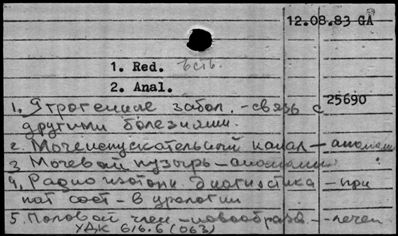 12.08.83 GA
1. Red. есть
2. Anal.
25690
1. Ятрогенные забол. - связь с
другими болезнями.
2. Мочеиспускательный канал - аномалии
3 Мочевой пузырь - аномалии
4. Радиоизотопн. диагностика - при
пат сост - в урологии
5. Половой член - новообразов. - лечен
УДК 616.6 (063)